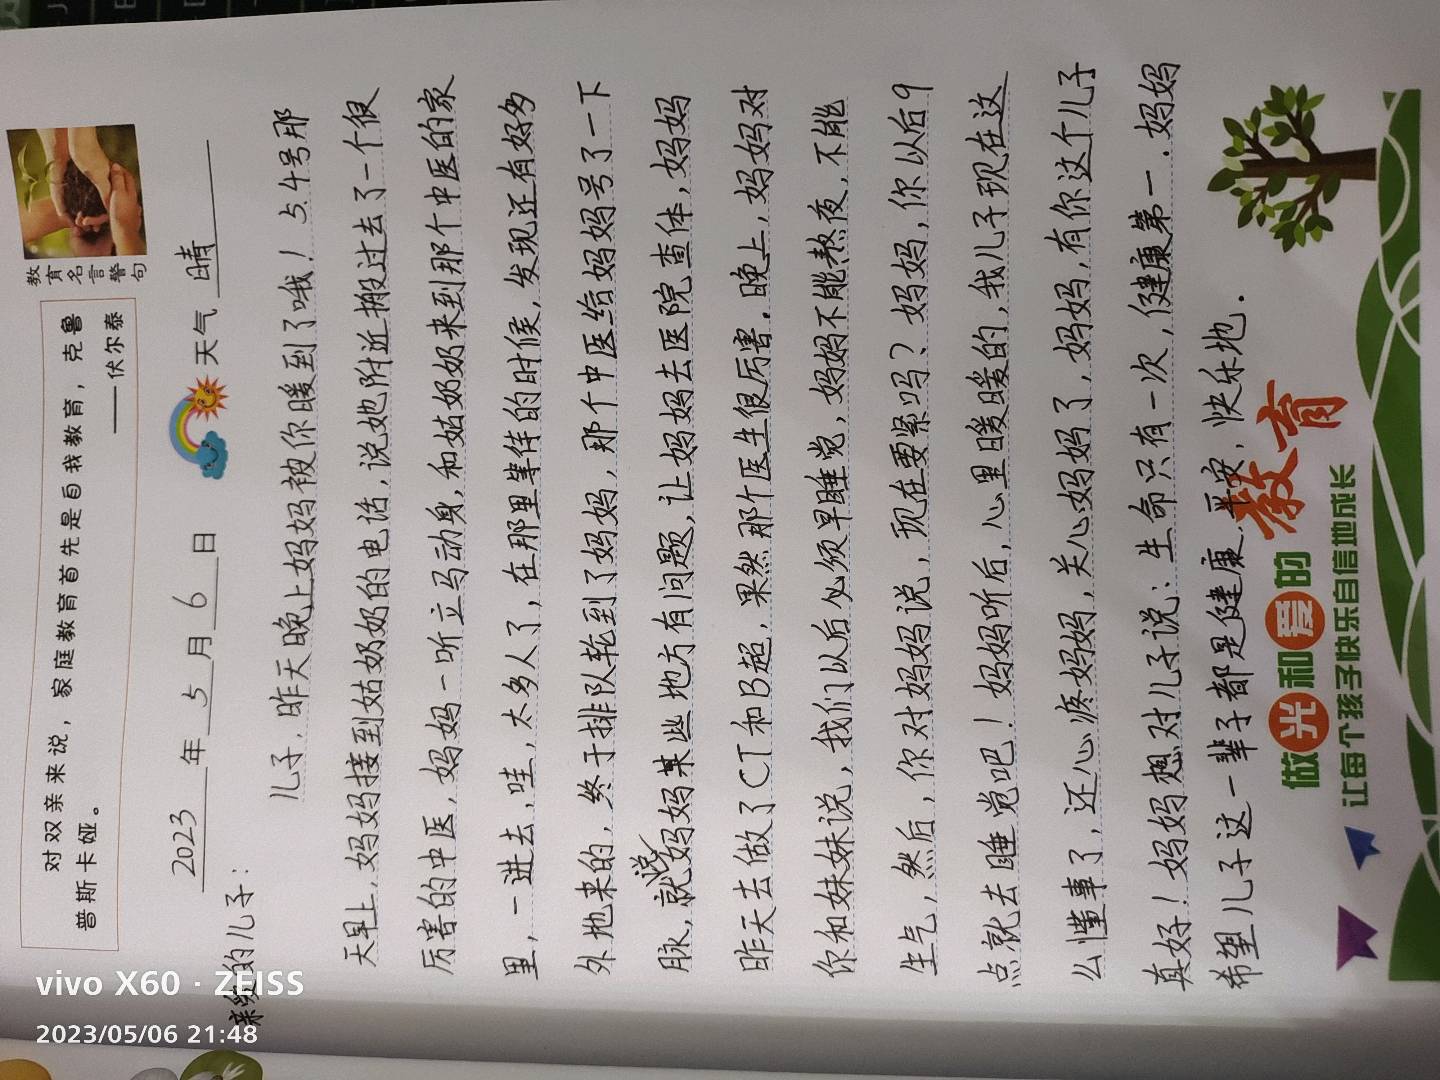 教育名言警句
对双亲来说，家庭教育首先是自我教育，克鲁
普斯卡娅。
——伏尔泰
2023 年 5 月 6 日 天气 晴
亲爱的儿子：
儿子，昨天晚上妈妈被你暖到了哦！5.4号那
天早上，妈妈接到姑奶奶的电话，说她附近搬过去了一个很
厉害的中医，妈妈一听立马动身，和姑奶奶来到那个中医的家
里，一进去，哇，太多人了，在那里等待的时候，发现还有好多
外地来的，终于排队轮到了妈妈，那个中医给妈妈号了一下
脉，就说妈妈某些地方有问题，让妈妈去医院查体，妈妈
昨天去做了CT和B超，果然那个医生很厉害，晚上，妈妈对
你和妹妹说，我们以后必须早睡觉，妈妈不能熬夜，不能
生气，然后，你对妈妈说，现在要紧吗？妈妈，你以后9
点就去睡觉吧！妈妈听后，心里暖暖的，我儿子现在这
么懂事了，还心疼妈妈，关心妈妈了，妈妈，有你这个儿子
真好！妈妈想对儿子说：生命只有一次，健康第一．妈妈
希望儿子这一辈子都是健康，平安，快乐地．
做光和爱的教育
让每个孩子快乐自信地成长
vivo X60 · ZEISS
2023/05/06 21:48